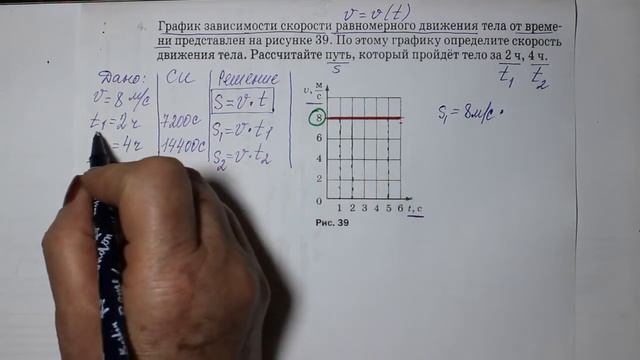 v = v(t)
4. График зависимости скорости равномерного движения тела от време-
ни представлен на рисунке 39. По этому графику определите скорость
движения тела. Рассчитайте путь, который пройдёт тело за 2 ч, 4 ч.
S t₁ t₂
Дано: СИ Решение
v = 8 м/с S = v · t
t₁ = 2 ч 7200с S₁ = v · t₁
= 4 ч 14400с S₂ = v · t₂
v, м/с
8
6
4
2
0 1 2 3 4 5 6 t, с
Рис. 39
S₁ = 8 м/с ·